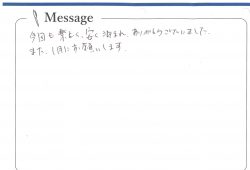 Message
今回も楽しく、安く泊まれ、ありがとうございました。
また、1月にお願いします。